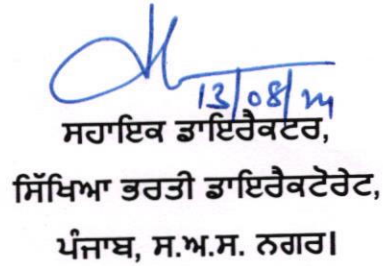 13/08/24
ਸਹਾਇਕ ਡਾਇਰੈਕਟਰ,
ਸਿੱਖਿਆ ਭਰਤੀ ਡਾਇਰੈਕਟੋਰੇਟ,
ਪੰਜਾਬ, ਸ.ਅ.ਸ. ਨਗਰ।